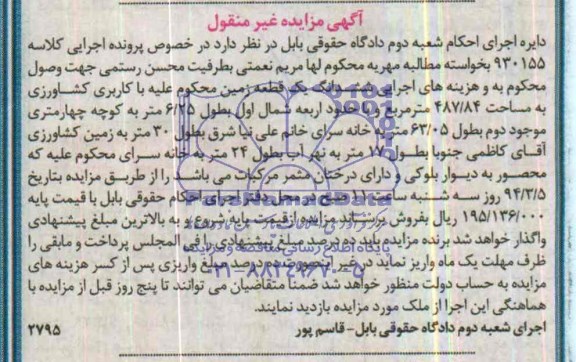 آگهی مزایده غیر منقول
دایره اجرای احکام شعبه دوم دادگاه حقوقی بابل در نظر دارد در خصوص پرونده اجرایی کلاسه
۹۳۰۱۵۵ بخواسته مطالبه مهریه محکوم لها مریم نعمتی بطرفیت محسن رستمی جهت وصول
محکوم به و هزینه های اجرایی ششدانگ یک قطعه زمین محکوم علیه با کاربری کشاورزی
به مساحت ۴۸۷/۸۴ مترمربع و با حدود اربعه شمال اول بطول ۶/۲۵ متر به کوچه چهارمتری
موجود دوم بطول ۶۳/۰۵ متر به خانه سرای خانم علی نیا شرق بطول ۳۰ متر به زمین کشاورزی
آقای کاظمی جنوبا بطول ۱۷ متر به نهر آب بطول ۲۴ متر به خانه سرای محکوم علیه که
محصور به دیوار بلوکی و دارای درختان مثمر مرکبات می باشد را از طریق مزایده بتاریخ
۹۴/۳/۵ روز سه شنبه ساعت ۱۱ صبح در محل دفتر اجرای احکام حقوقی بابل با قیمت پایه
۱۹۵/۱۳۶/۰۰۰ ریال بفروش برساند مزایده از قیمت پایه شروع و به بالاترین مبلغ پیشنهادی
واگذار خواهد شد برنده مزایده باید ده درصد مبلغ پیشنهادی را فی المجلس پرداخت و مابقی را
ظرف مهلت یک ماه واریز نماید در غیر اینصورت ده درصد مبلغ واریزی پس از کسر هزینه های
مزایده به حساب دولت منظور خواهد شد ضمنا متقاضیان می توانند تا پنج روز قبل از مزایده با
هماهنگی این اجرا از ملک مورد مزایده بازدید نمایند.
اجرای شعبه دوم دادگاه حقوقی بابل - قاسم پور
۲۷۹۵
ParsNamadData
۰۲۱-۸۸۳۴۹۶۷۰-۵